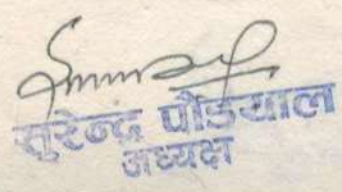 सुरेन्द्र पौडयाल
अध्यक्ष